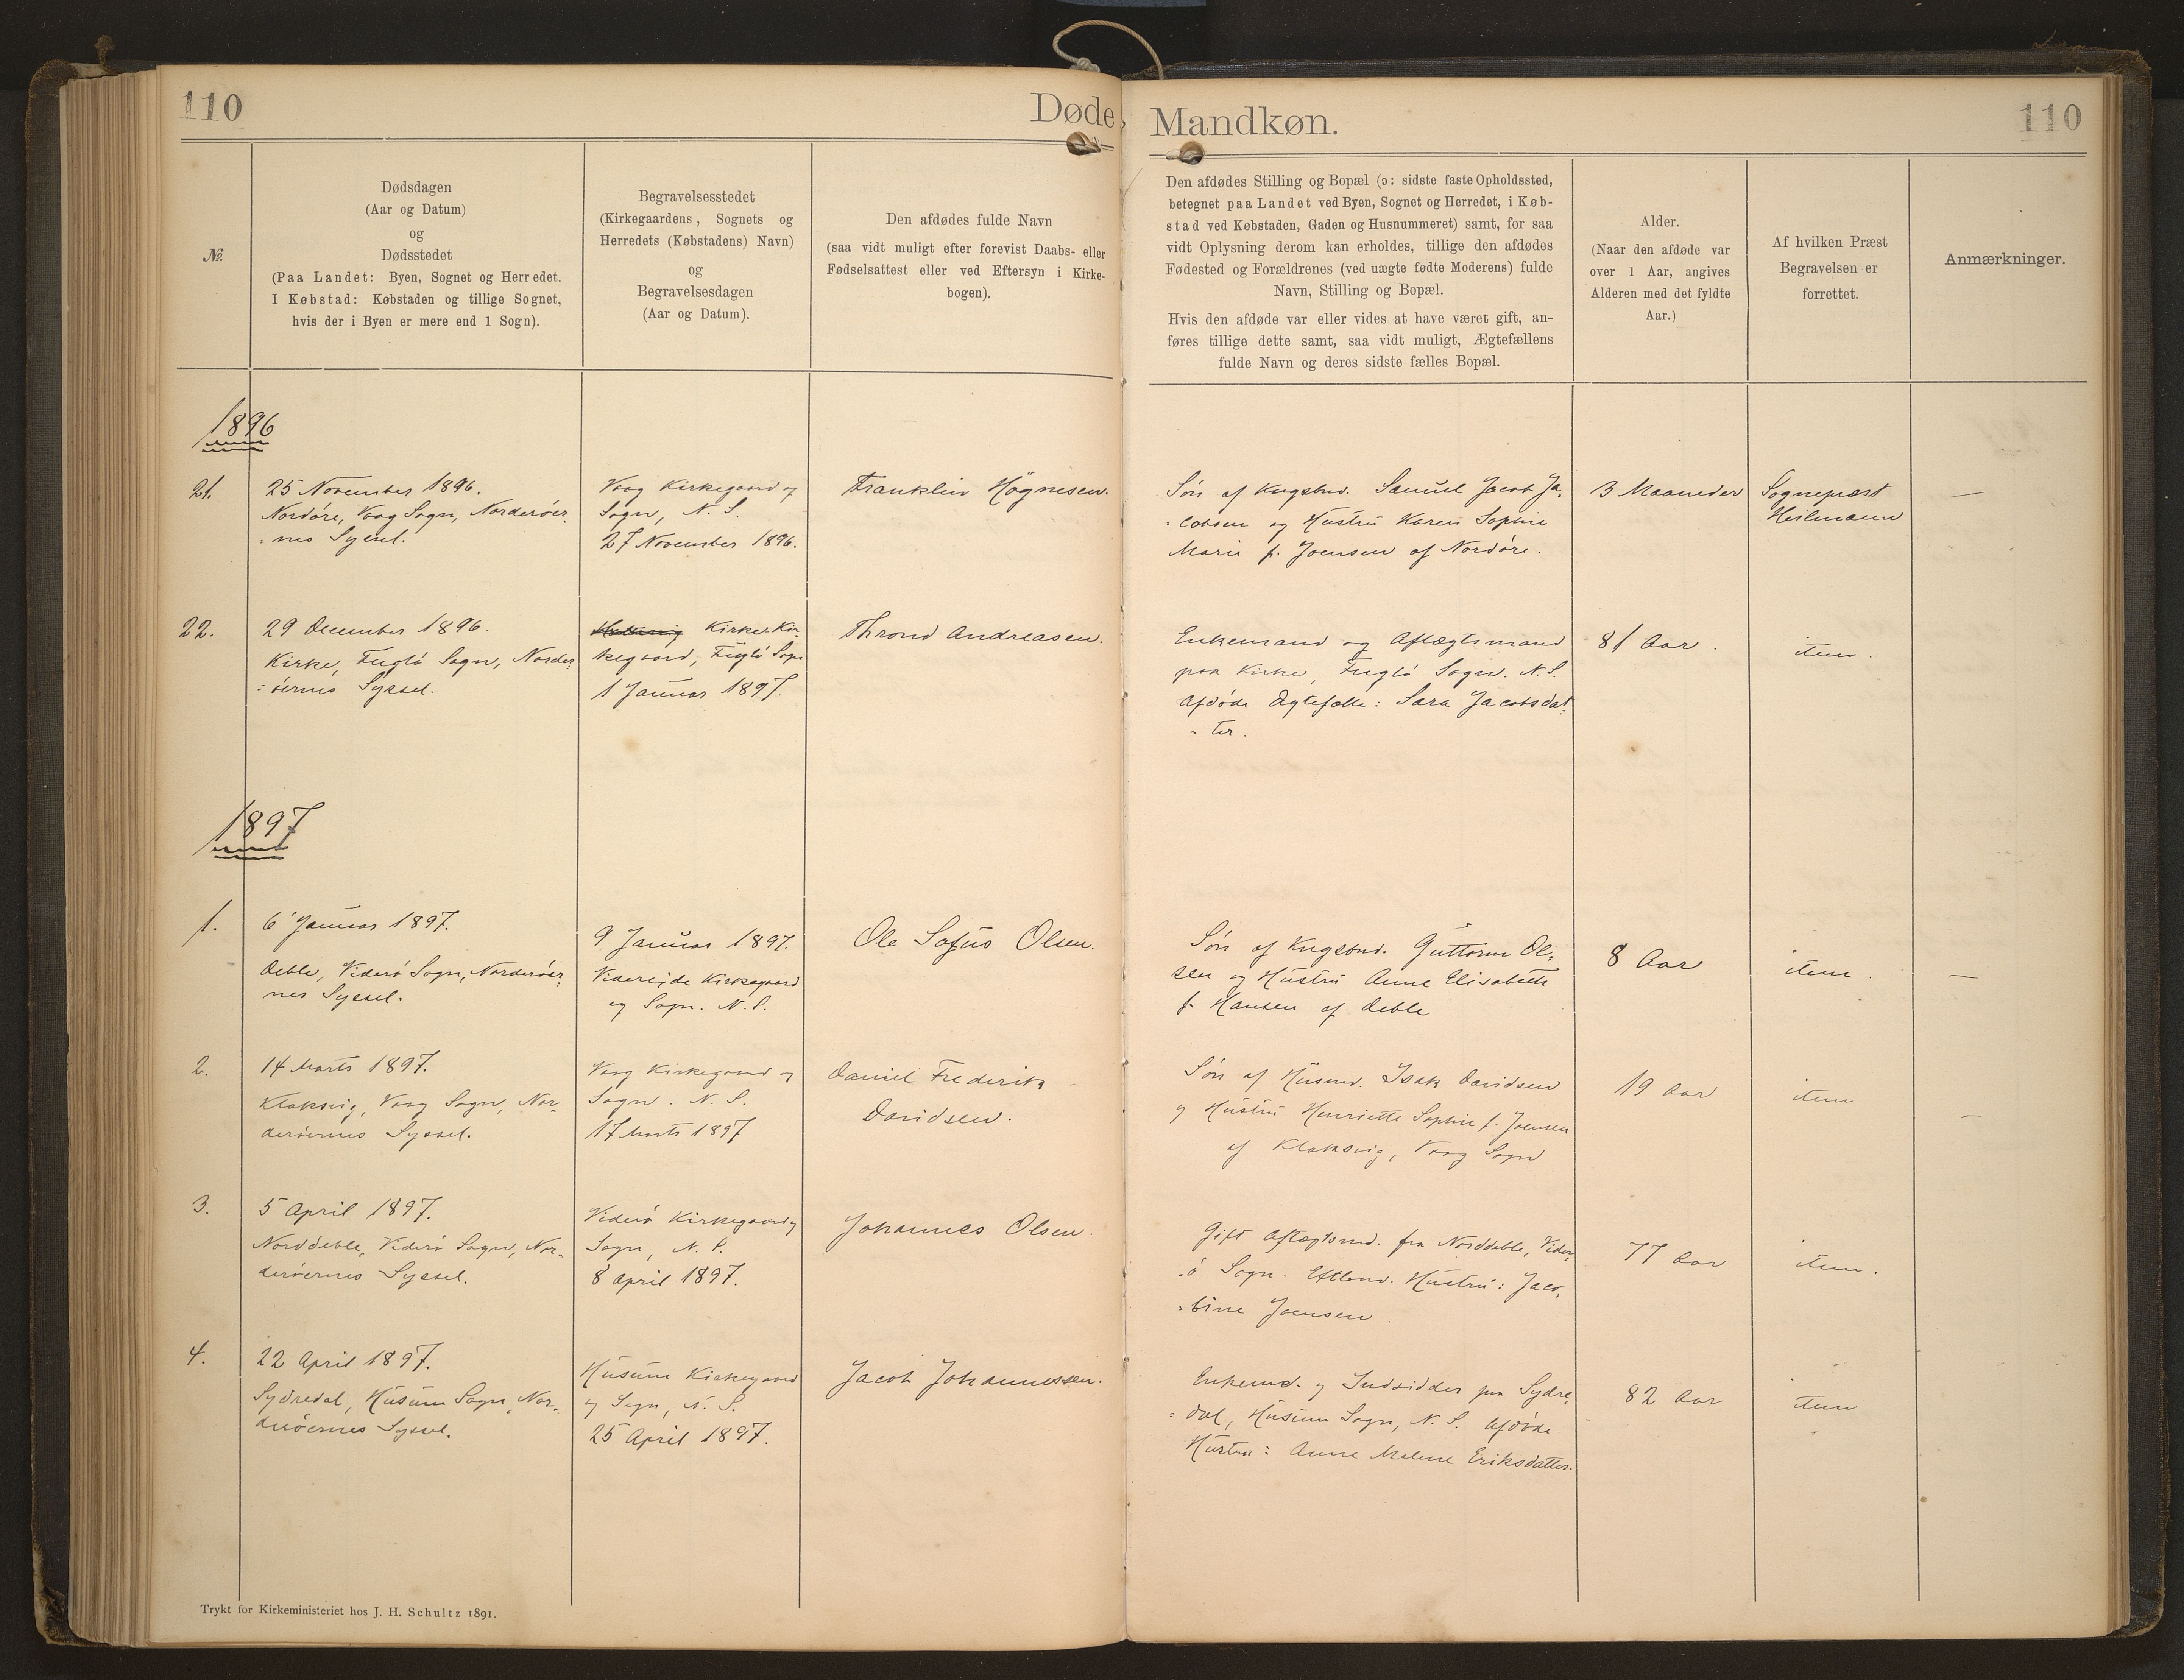 110
Døde,
Mandkøn.
110
№.
Dødsdagen
(Aar og Datum)
og
Dødsstedet
(Paa Landet: Byen, Sognet og Herredet.
I Købstad: Købstaden og tillige Sognet,
hvis der i Byen er mere end 1 Sogn).
Begravelsesstedet
(Kirkegaardens, Sognets og
Herredets (Købstadens) Navn)
og
Begravelsesdagen
(Aar og Datum).
Den afdødes fulde Navn
(saa vidt muligt efter forevist Daabs- eller
Fødselsattest eller ved Eftersyn i Kirke-
bogen).
Den afdødes Stilling og Bopæl (ɔ: sidste faste Opholdssted,
betegnet paa Landet ved Byen, Sognet og Herredet, i Køb-
stad ved Købstaden, Gaden og Husnummeret) samt, for saa
vidt Oplysning derom kan erholdes, tillige den afdødes
Fødested og Forældrenes (ved uægte fødte Moderens) fulde
Navn, Stilling og Bopæl.
Hvis den afdøde var eller vides at have været gift, an-
føres tillige dette samt, saa vidt muligt, Ægtefællens
fulde Navn og deres sidste fælles Bopæl.
Alder.
(Naar den afdøde var
over 1 Aar, angives
Alderen med det fyldte
Aar.)
Af hvilken Præst
Begravelsen er
forrettet.
Anmærkninger.
1896
21.
25 November 1896.
Nordöre, Vaag Sogn, Norderöer-
-nes Syssel.
Vaag Kirkegaard og
Sogn, N. S.
27 November 1896.
Franklin Högnesen.
Sön af Kngsbnd. Samuel Jacob Ja-
-cobsen og Hustru Karen Sophie
Marie f. Joensen af Nordöre.
3 Maaneder
Sognepræst
Heilmann
—
22.
29 December 1896.
Kirke, Fuglö Sogn, Norder-
-öernes Syssel.
Kirke Kir-
kegaard, Fuglö Sogn
1 Januar 1897.
Thrond Andreasen.
Enkemand og Aftægtsmand
paa Kirke, Fuglö Sogn. N. S.
Afdöde Ægtefælle: Sara Jacobsdat-
-ter.
81 Aar.
item.
1897
1.
6 Januar 1897.
Deble, Viderö Sogn, Norderöer-
nes Syssel.
9 Januar 1897.
Videreide Kirkegaard
og Sogn. N. S.
Ole Sofus Olsen.
Sön af Kngsbnd. Guttorm Ol-
sen og Hustru Anne Elisabeth
f. Hansen af Deble
8 Aar
item.
—
2.
14 Marts 1897.
Klaksvig, Vaag Sogn, Nor-
deröernes Syssel.
Vaag Kirkegaard og
Sogn. N. S.
17 Marts 1897
Daniel Frederik
Davidsen.
Sön af Husmd. Isak Davidsen
og Hustru Henriette Sophie f. Joensen
af Klaksvig, Vaag Sogn
19 Aar
item
—
3.
5 April 1897.
Norddeble, Viderö Sogn, Nor-
deröernes Syssel.
Viderö Kirkegaard og
Sogn, N. S.
8 April 1897.
Johannes Olsen.
Gift Aftægtsmd. fra Norddeble, Vider-
-ö Sogn. Eftlevd. Hustru: Jaco-
-bine Joensen.
77 Aar
item.
4.
22 April 1897.
Sydredal, Husum Sogn, Nor-
deröernes Syssel.
Husum Kirkegaard
og Sogn, N. S.
25 April 1897.
Jacob Johannessen.
Enkemd. og Indsidder paa Sydre-
-dal, Husum Sogn, N. S. Afdöde
Hustru: Anne Malene Eriksdatter.
82 Aar
item
Trykt for Kirkeministeriet hos J. H. Schultz 1891.